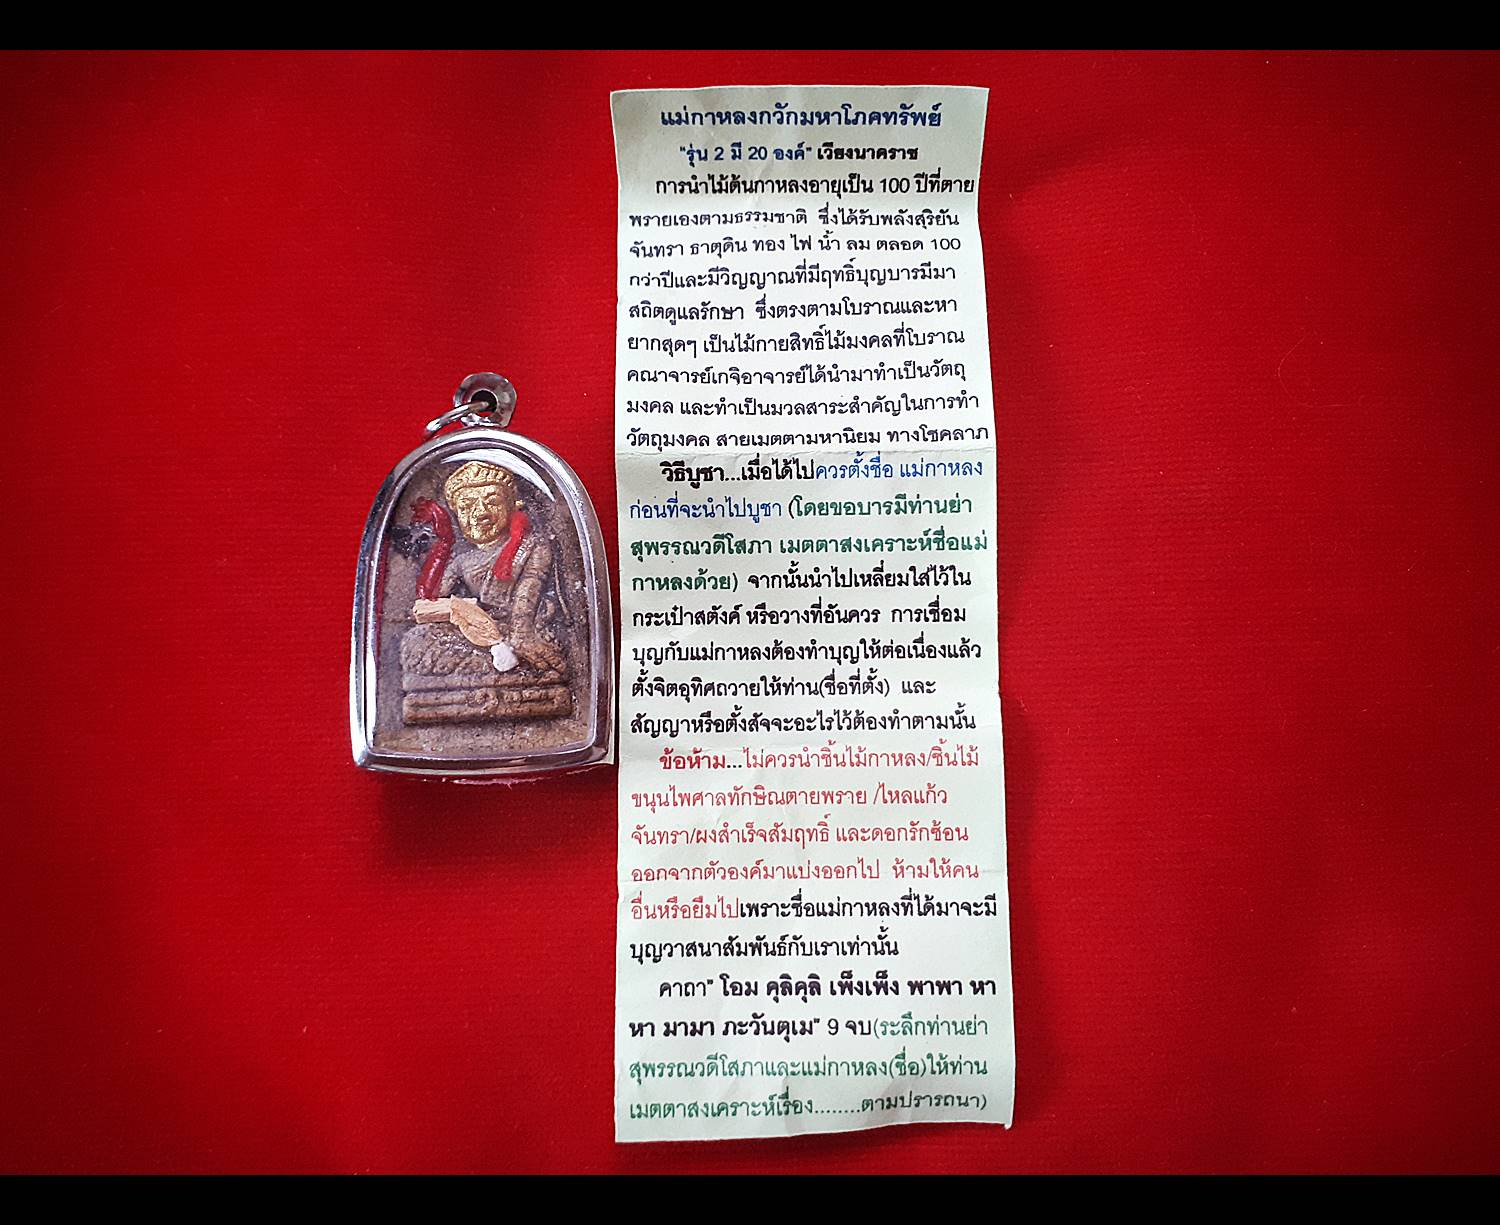 แม่กาหลงกวักมหาโภคทรัพย์
"รุ่น 2 มี 20 องค์" เวียงนาคราช
การนำไม้ต้นกาหลงอายุเป็น 100 ปีที่ตาย
พรายเองตามธรรมชาติ ซึ่งได้รับพลังสุริยัน
จันทรา ธาตุดิน ทอง ไฟ น้ำ ลม ตลอด 100
กว่าปีและมีวิญญาณที่มีฤทธิ์บุญบารมีมา
สถิตดูแลรักษา ซึ่งตรงตามโบราณและหา
ยากสุดๆ เป็นไม้กายสิทธิ์ไม้มงคลที่โบราณ
คณาจารย์เกจิอาจารย์ได้นำมาทำเป็นวัตถุ
มงคล และทำเป็นมวลสาระสำคัญในการทำ
วัตถุมงคล สายเมตตามหานิยม ทางโชคลาภ
วิธีบูชา...เมื่อได้ไปควรตั้งชื่อ แม่กาหลง
ก่อนที่จะนำไปบูชา (โดยขอบารมีท่านย่า
สุพรรณวดีโสภา เมตตาสงเคราะห์ชื่อแม่
กาหลงด้วย) จากนั้นนำไปเหลี่ยมใส่ไว้ใน
กระเป๋าสตังค์ หรือวางที่อันควร การเชื่อม
บุญกับแม่กาหลงต้องทำบุญให้ต่อเนื่องแล้ว
ตั้งจิตอุทิศถวายให้ท่าน(ชื่อที่ตั้ง) และ
สัญญาหรือตั้งสัจจะอะไรไว้ต้องทำตามนั้น
ข้อห้าม...ไม่ควรนำชิ้นไม้กาหลง/ชิ้นไม้
ขนุนไพศาลทักษิณตายพราย /ไหลแก้ว
จันทรา/ผงสำเร็จสัมฤทธิ์ และดอกรักซ้อน
ออกจากตัวองค์มาแบ่งออกไป ห้ามให้คน
อื่นหรือยืมไปเพราะชื่อแม่กาหลงที่ได้มาจะมี
บุญวาสนาสัมพันธ์กับเราเท่านั้น
คาถา" โอม คุลิคุลิ เพ็งเพ็ง พาพา หา
หา มามา ภะวันตุเม" 9 จบ(ระลึกท่านย่า
สุพรรณวดีโสภาและแม่กาหลง(ชื่อ)ให้ท่าน
เมตตาสงเคราะห์เรื่อง........ตามปรารถนา)